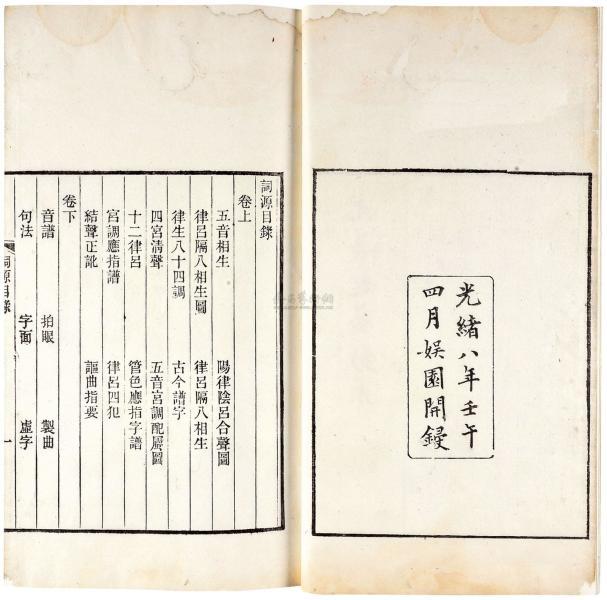 光緒八年壬午
四月娛園開鋟
詞源目錄
卷上
五音相生　陽律陰呂合聲圖
律呂隔八相生圖　律呂隔八相生
律生八十四調　古今譜字
四宮清聲　五音宮調配屬圖
十二律呂　管色應指字譜
宮調應指譜　律呂四犯
結聲正訛　謳曲指要
卷下
音譜　拍眼　製曲
句法　字面　虛字
詞源目錄　一